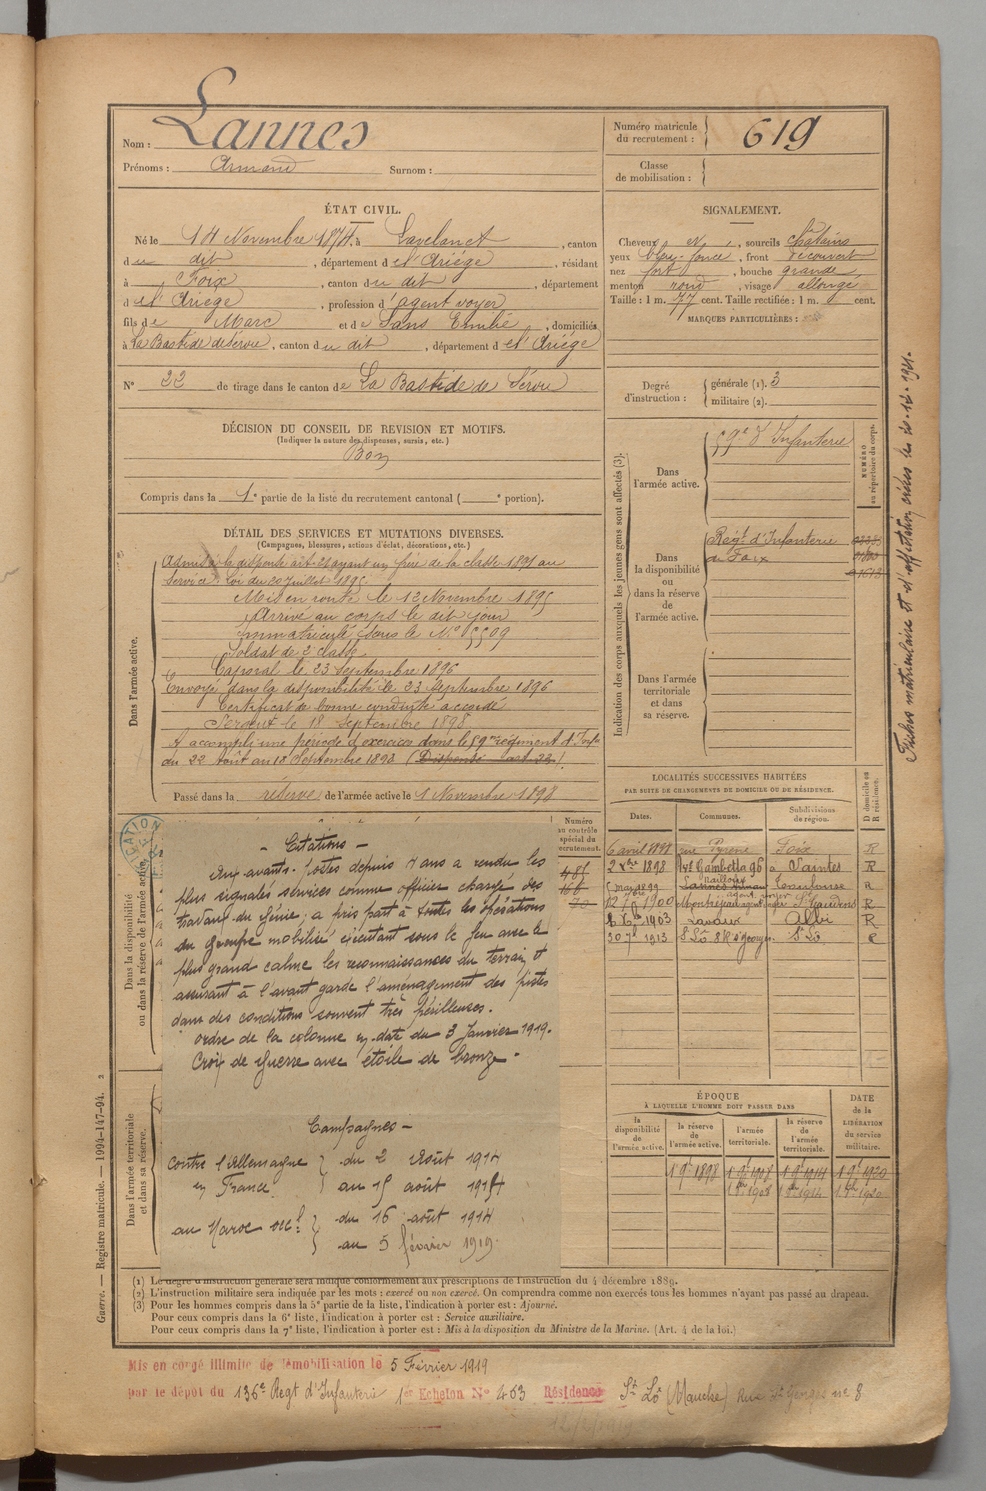 Nom : Lannes
Prénoms : Armand Surnom :
Numéro matricule du recrutement : 619
Classe de mobilisation :
ÉTAT CIVIL.
Né le 14 Novembre 1874, à Lavelanet, canton
du dit, département de l'Ariége, résidant
à Foix, canton du dit, département
de l'Ariége, profession d'agent voyer
fils de Marc et de Sans Emilie, domiciliés
à La Bastide de Sérou, canton du dit, département de l'Ariége
N° 22 de tirage dans le canton de La Bastide de Sérou
SIGNALEMENT.
Cheveux et, sourcils châtains
yeux bleu foncé, front découvert
nez fort, bouche grande,
menton rond, visage allongé
Taille : 1 m. 77 cent. Taille rectifiée : 1 m. cent.
MARQUES PARTICULIÈRES :
Degré d'instruction : générale (1). 3
militaire (2).
DÉCISION DU CONSEIL DE REVISION ET MOTIFS.
(Indiquer la nature des dispenses, sursis, etc.)
Bon
Compris dans la 1e partie de la liste du recrutement cantonal ( e portion).
DÉTAIL DES SERVICES ET MUTATIONS DIVERSES.
(Campagnes, blessures, actions d'éclat, décorations, etc.)
Dans l'armée active.
Admis à la dispense art. 21 ayant un frère de la classe 1891 au
service. Loi du 20 Juillet 1895
Mis en route le 12 Novembre 1895
Arrivé au corps le dit jour
Immatriculé sous le N° 5509
Soldat de 2e classe
Caporal le 23 Septembre 1896
Envoyé dans la disponibilité le 23 Septembre 1896
Certificat de bonne conduite accordé
Sergent le 18 Septembre 1898
A accompli une période d'exercices dans le 59me régiment d'Infie
du 22 Août au 18 Septembre 1898 (Dispensé art. 22).
Passé dans la réserve de l'armée active le 1 Novembre 1898
Indication des corps auxquels les jeunes gens sont affectés (3).
Dans l'armée active. 59e d'Infanterie
NUMÉRO au répertoire du corps.
Dans la disponibilité ou dans la réserve de l'armée active.
Régt d'Infanterie
de Foix
Dans l'armée territoriale et dans sa réserve.
Fiches matriculaire et d'affectation créées le
LOCALITÉS SUCCESSIVES HABITÉES
PAR SUITE DE CHANGEMENTS DE DOMICILE OU DE RÉSIDENCE.
Dates. Communes. Subdivisions de région. D domicile ou R résidence.
6 avril 1898 rue Pyrène Foix R
2 Xbre 1898 Ave Gambetta 96 à Saintes R
Toulouse R
1900 Montréjeau agent voyer St Gaudens R
1903 Lavaur Albi R
30 7e 1913 St Lô 8 R. St Georges St Lô R
Dans la disponibilité ou dans la réserve de l'armée active.
Numéro au contrôle spécial du recrutement.
485
166
- Citations -
Aux avants-postes depuis 4 ans a rendu les
plus signalés services comme officier chargé des
travaux du génie ; a pris part à toutes les opérations
du groupe mobilisé exécutant sous le feu avec le
plus grand calme les reconnaissances du terrain et
assurant à l'avant garde l'aménagement des pistes
dans des conditions souvent très périlleuses.
ordre de la colonne en date du 3 Janvier 1919.
Croix de Guerre avec étoile de bronze.
Campagnes -
contre l'Allemagne } du 2 Août 1914
en France } au 15 août 1914
au Maroc occl } du 16 août 1914
au 5 février 1919.
Dans l'armée territoriale et dans sa réserve.
ÉPOQUE
À LAQUELLE L'HOMME DOIT PASSER DANS
DATE de la LIBÉRATION du service militaire.
la disponibilité de l'armée active. la réserve de l'armée active. l'armée territoriale. la réserve de l'armée territoriale.
1 9e 1898 1 9e 1908 1 9e 1914 1 9e 1920
Guerre. — Registre matricule. — 1994-147-94. 2
(1) Le degré d'instruction générale sera indiqué conformément aux prescriptions de l'instruction du 4 décembre 1889.
(2) L'instruction militaire sera indiquée par les mots : exercé ou non exercé. On comprendra comme non exercés tous les hommes n'ayant pas passé au drapeau.
(3) Pour les hommes compris dans la 5e partie de la liste, l'indication à porter est : Ajourné.
Pour ceux compris dans la 6e liste, l'indication à porter est : Service auxiliaire.
Pour ceux compris dans la 7e liste, l'indication à porter est : Mis à la disposition du Ministre de la Marine. (Art. 4 de la loi.)
Mis en congé illimité de démobilisation le 5 Février 1919
par le dépôt du 136e Regt d'Infanterie 1er Echelon N° 463 Résidence St Lô (Manche) Rue St Georges n° 8